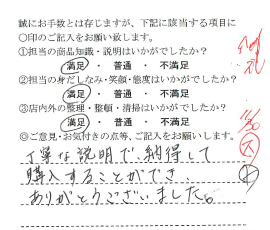 誠にお手数とは存じますが、下記に該当する項目に
〇印のご記入をお願い致します。
①担当の商品知識・説明はいかがでしたか？
満足 ・ 普通 ・ 不満足
②担当の身だしなみ・笑顔・態度はいかがでしたか？
満足 ・ 普通 ・ 不満足
③店内外の整理・整頓・清掃はいかがでしたか？
満足 ・ 普通 ・ 不満足
◎ご意見・お気付きの点等、ご記入をお願いします。
丁寧な説明で、納得して
購入することができ、
ありがとうございました。